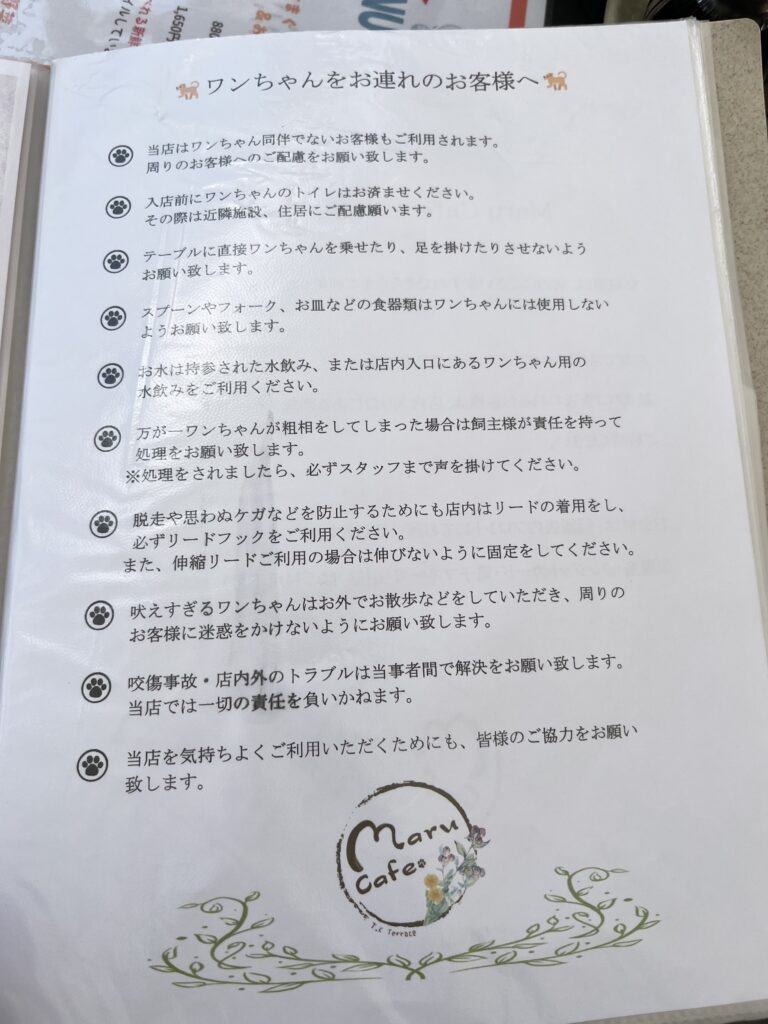 1,650円
880
ワンちゃんをお連れのお客様へ
当店はワンちゃん同伴でないお客様もご利用されます。
周りのお客様へのご配慮をお願い致します。
入店前にワンちゃんのトイレはお済ませください。
その際は近隣施設、住居にご配慮願います。
テーブルに直接ワンちゃんを乗せたり、足を掛けたりさせないよう
お願い致します。
スプーンやフォーク、お皿などの食器類はワンちゃんには使用しない
ようお願い致します。
お水は持参された水飲み、または店内入口にあるワンちゃん用の
水飲みをご利用ください。
万が一ワンちゃんが粗相をしてしまった場合は飼主様が責任を持って
処理をお願い致します。
※処理をされましたら、必ずスタッフまで声を掛けてください。
脱走や思わぬケガなどを防止するためにも店内はリードの着用をし、
必ずリードフックをご利用ください。
また、伸縮リードご利用の場合は伸びないように固定をしてください。
吠えすぎるワンちゃんはお外でお散歩などをしていただき、周りの
お客様に迷惑をかけないようにお願い致します。
咬傷事故・店内外のトラブルは当事者間で解決をお願い致します。
当店では一切の責任を負いかねます。
当店を気持ちよくご利用いただくためにも、皆様のご協力をお願い
致します。
Maru
Cafe
T.K Terrace